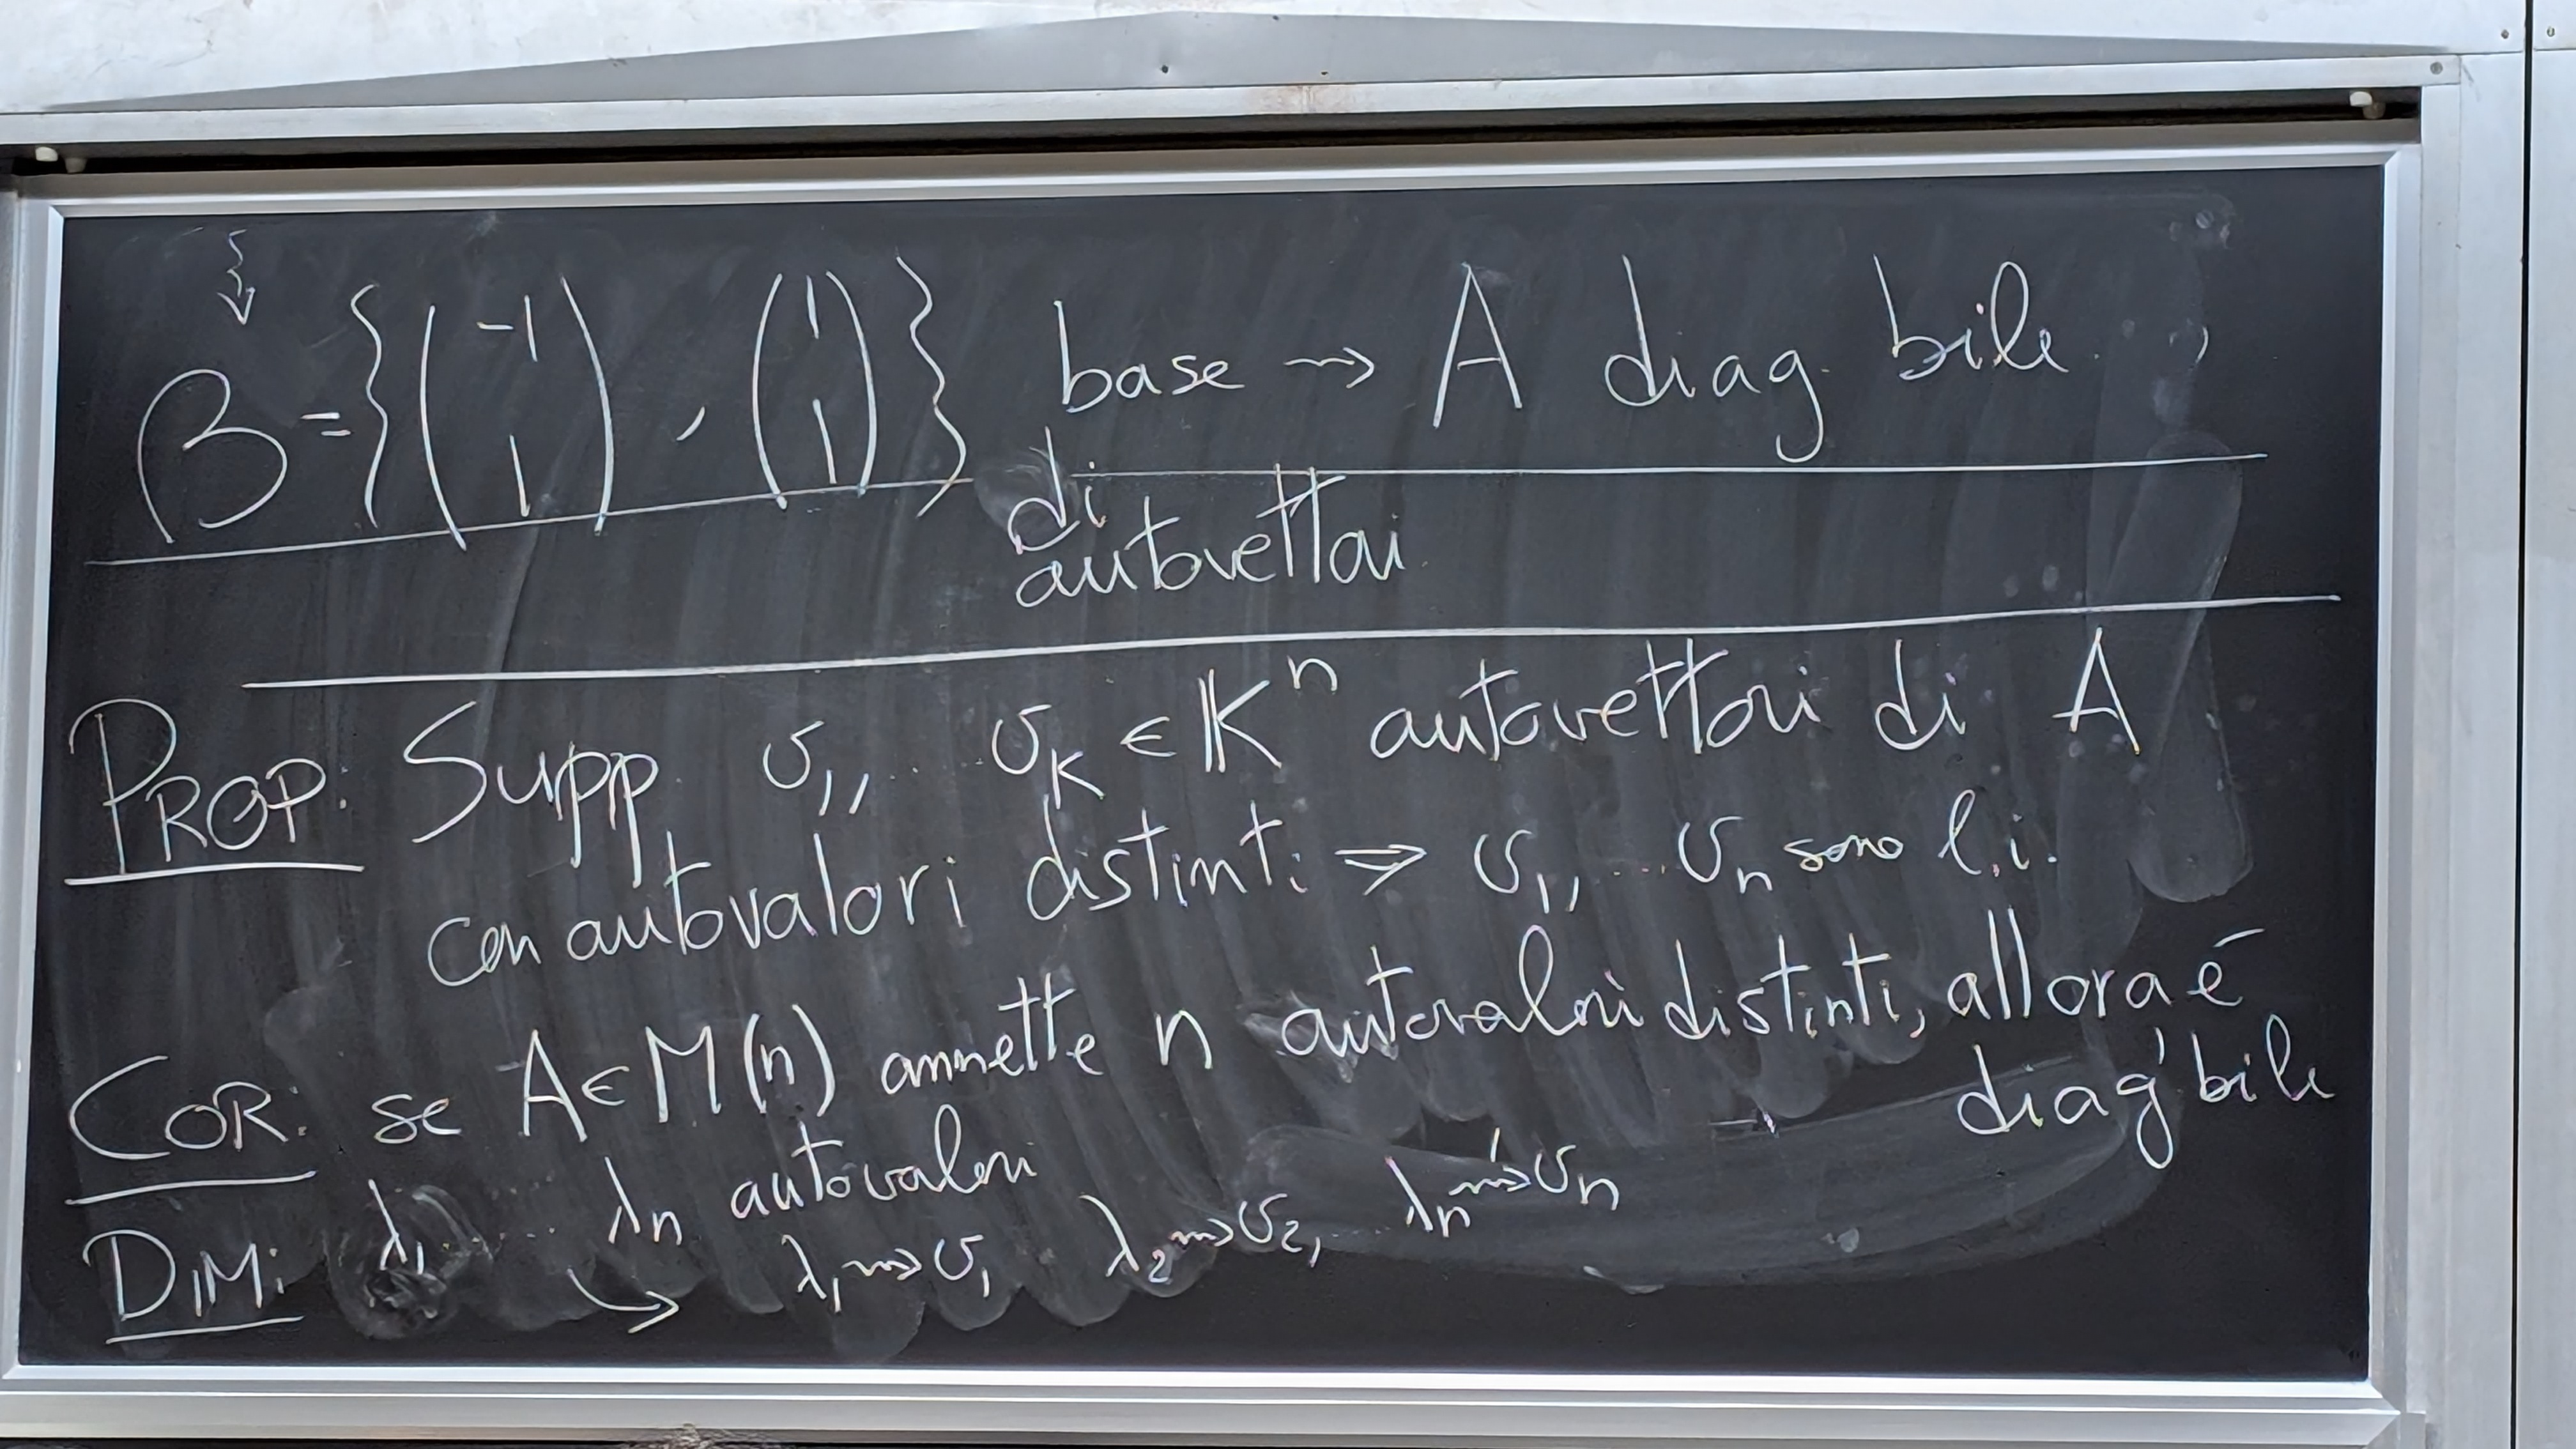 B = { (-1 1) , (1 1) } base → A diag.bile
di
autovettori
PROP. Supp. v₁, ... vₖ ∈ 𝕂ⁿ autovettori di A
con autovalori distinti ⇒ v₁, ... vₙ sono l.i.
COR: se A ∈ M(n) ammette n autovalori distinti, allora é
diag'bile
DIM: λ₁ ... λₙ autovalori
↳ λ₁ ⇝ v₁ λ₂ ⇝ v₂, ... λₙ ⇝ vₙ